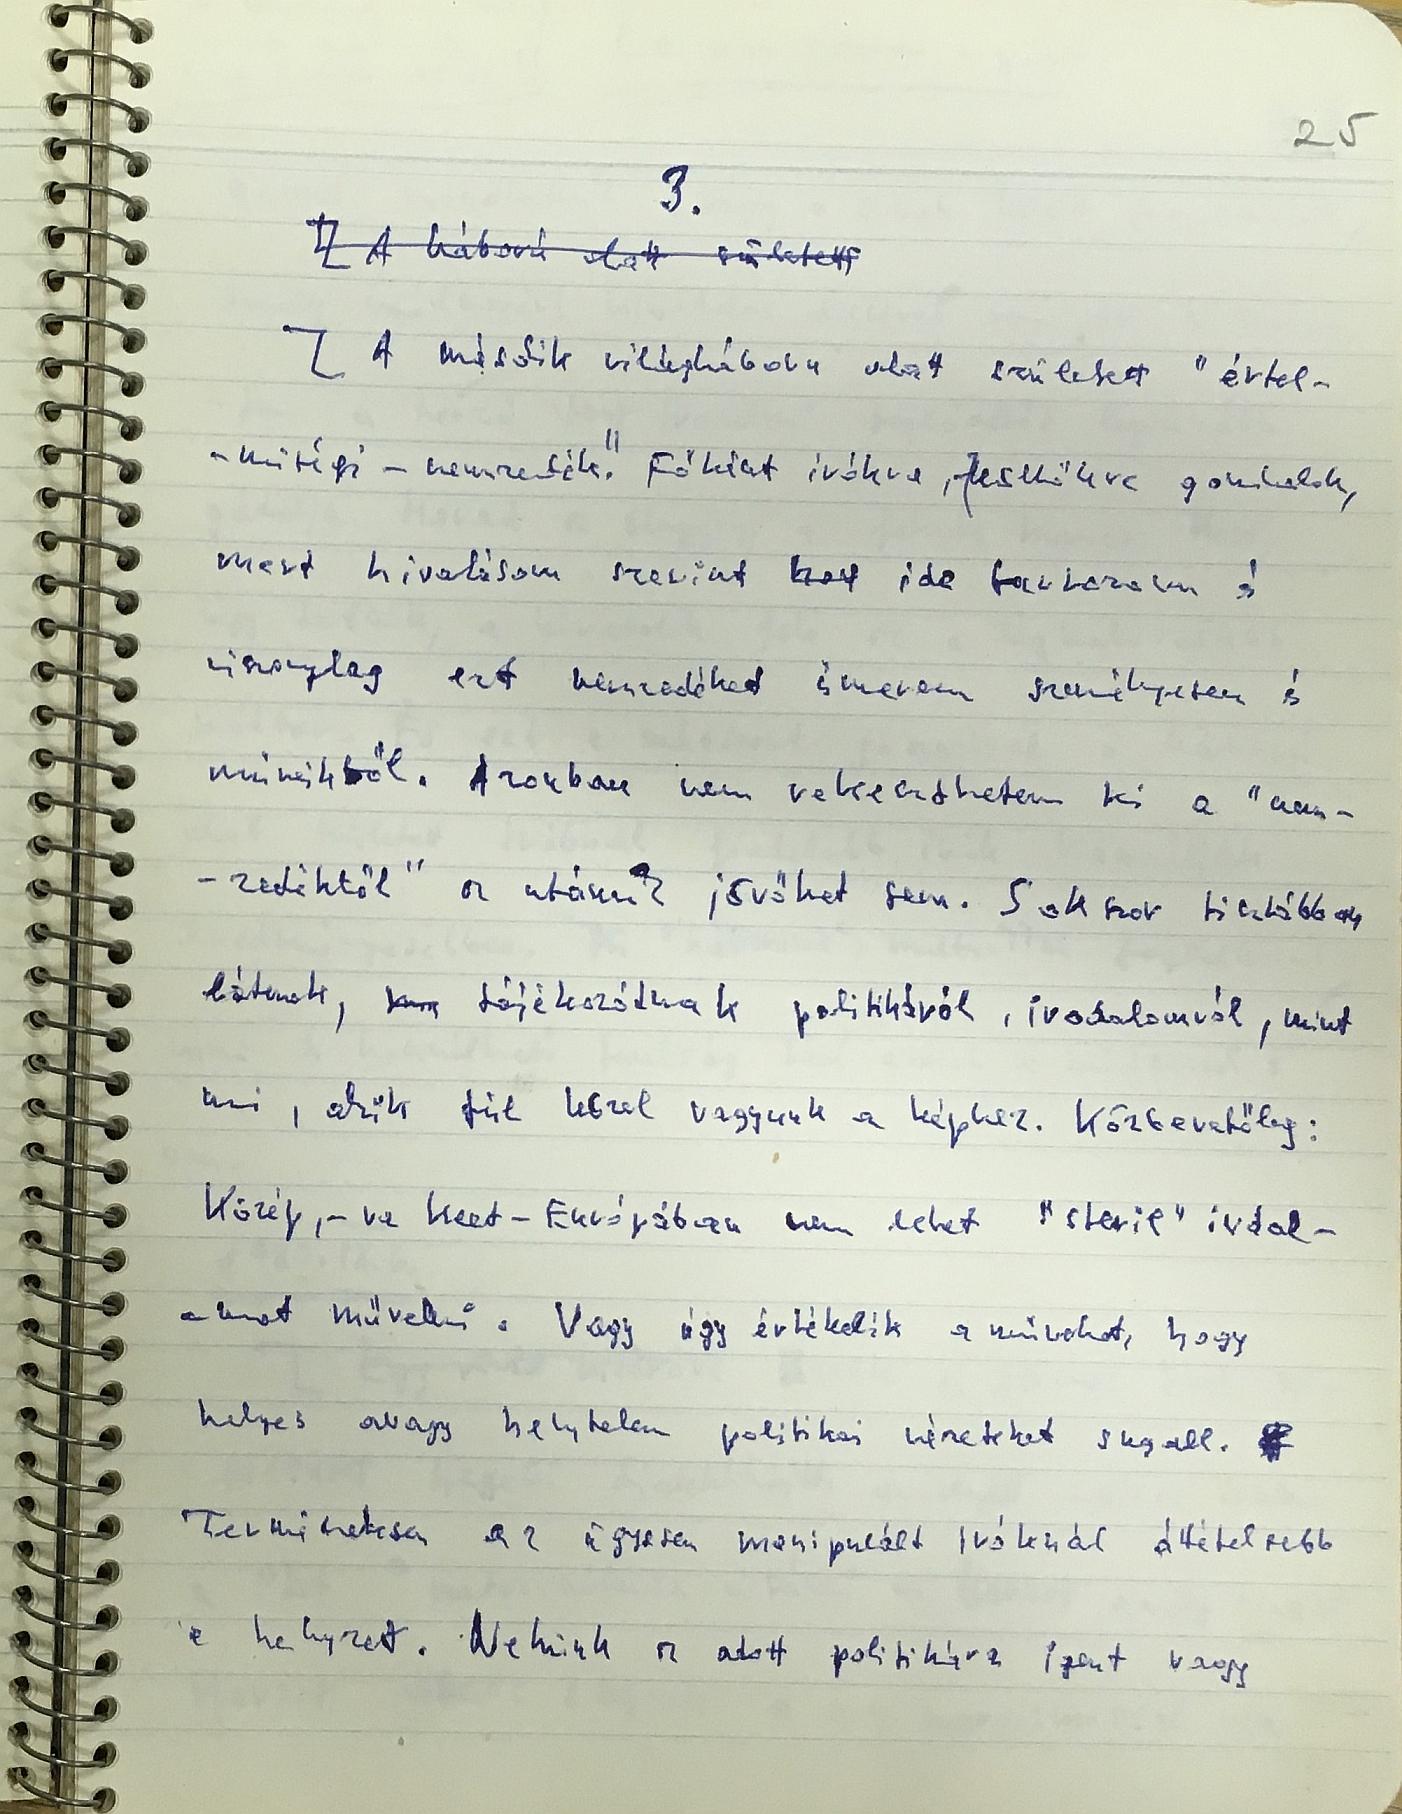 25
3.
A háború alatt született
A második világháború alatt született "értel-
-miségi-nemzedék." Főként írókra, költőkre gondolok,
mert hivatásom szerint ide tartozom és
viszonylag ezt nemzedéket ismerem személyesen és
műveikből. Azonban nem rekeszthetem ki a "nem-
-zedéktől" az utánunk jövőket sem. Sokszor tisztábban
látnak, tájékozódnak politikáról, irodalomról, mint
mi, akik túl közel vagyunk a képhez. Közbevetőleg:
Közép,-va Kelet-Európában nem lehet "steril" irodal-
-mat művelni. Vagy úgy értékelik a műveket, hogy
helyes avagy helytelen politikai nézeteket sugall.
Természetesen az ügyesen manipulált íróknál áttételesebb
e helyzet. Nekünk az adott politikára igent vagy